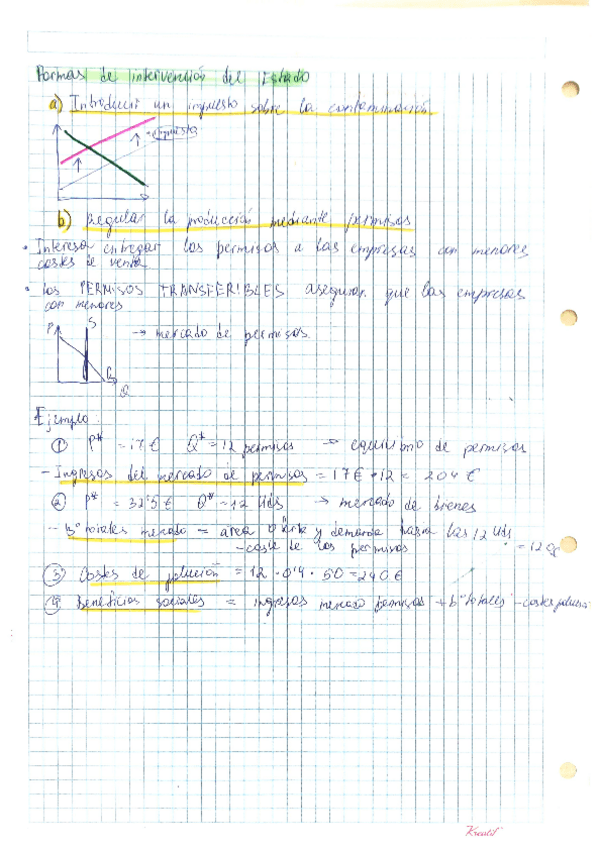 Formas de intervención del Estado
a) Introducir un impuesto sobre la contaminación
↑ impuesto
b) Regular la producción mediante permisos
• Interesa entregar los permisos a las empresas con menores
costes de venta
• los PERMISOS TRANSFERIBLES aseguran que las empresas
con menores
P S → mercado de permisos.
Q
Ejemplo:
① P* = 17 € Q* = 12 permisos → equilibrio de permisos
- Ingresos del mercado de permisos = 17 € · 12 = 204 €
② P* = 32'5 € Q* = 12 Uds → mercado de bienes
- Bº totales mercado = area y demanda hasta las 12 Uds
- coste de los permisos = 120
③ Costes de polución = 12 · 0'4 · 50 = 240 €
④ Beneficios sociales = ingresos mercado permisos + bº totales - costes polución
Kreatif